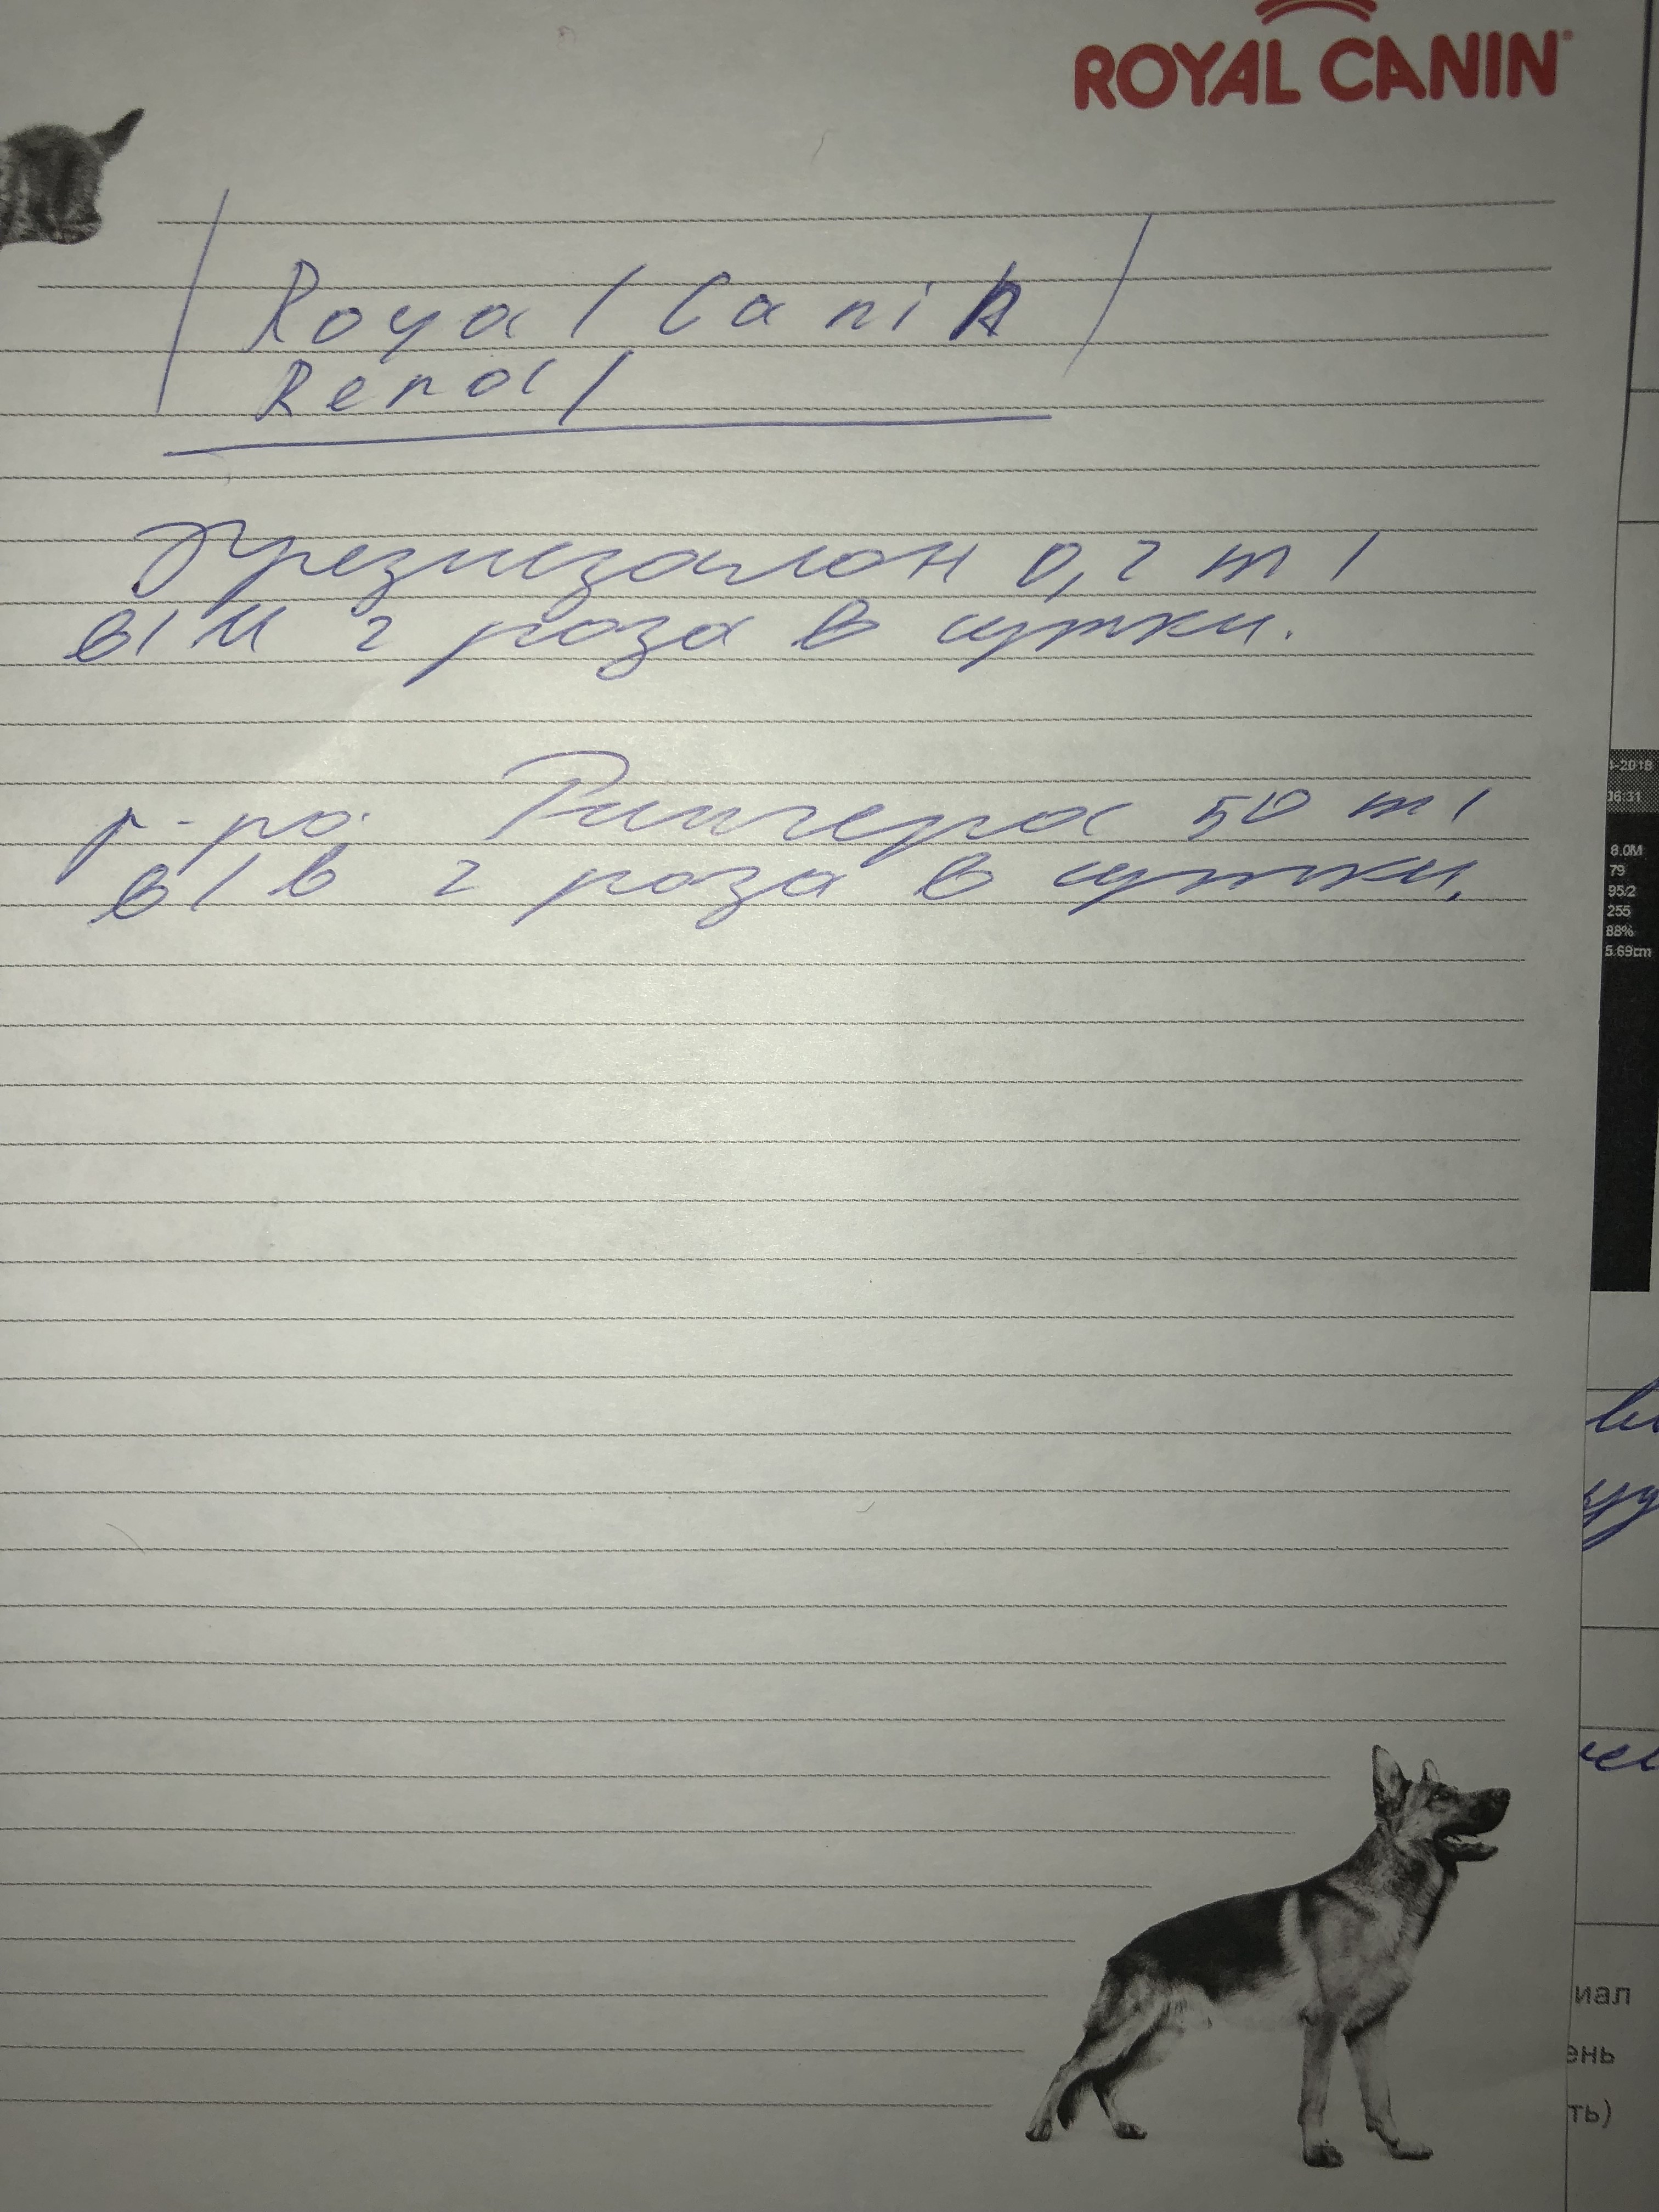 ROYAL CANIN
Royal Canin
Renal
Преднизолон 0,2 ml
в/м 2 раза в сутки.
р-ра. Рингера 50 ml
в/в 2 раза в сутки.
-2018
06:31
8.0M
79
95/2
255
88%
5.69cm
уд
иал
ень
ть)